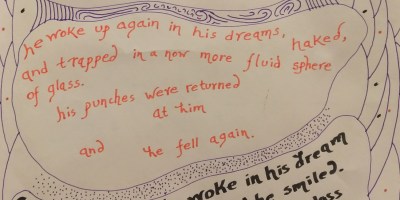 he woke up again in his dreams, naked,
and trapped in a new more fluid sphere
of glass.
his punches were returned
at him
and he fell again.
woke in his dream
he smiled.